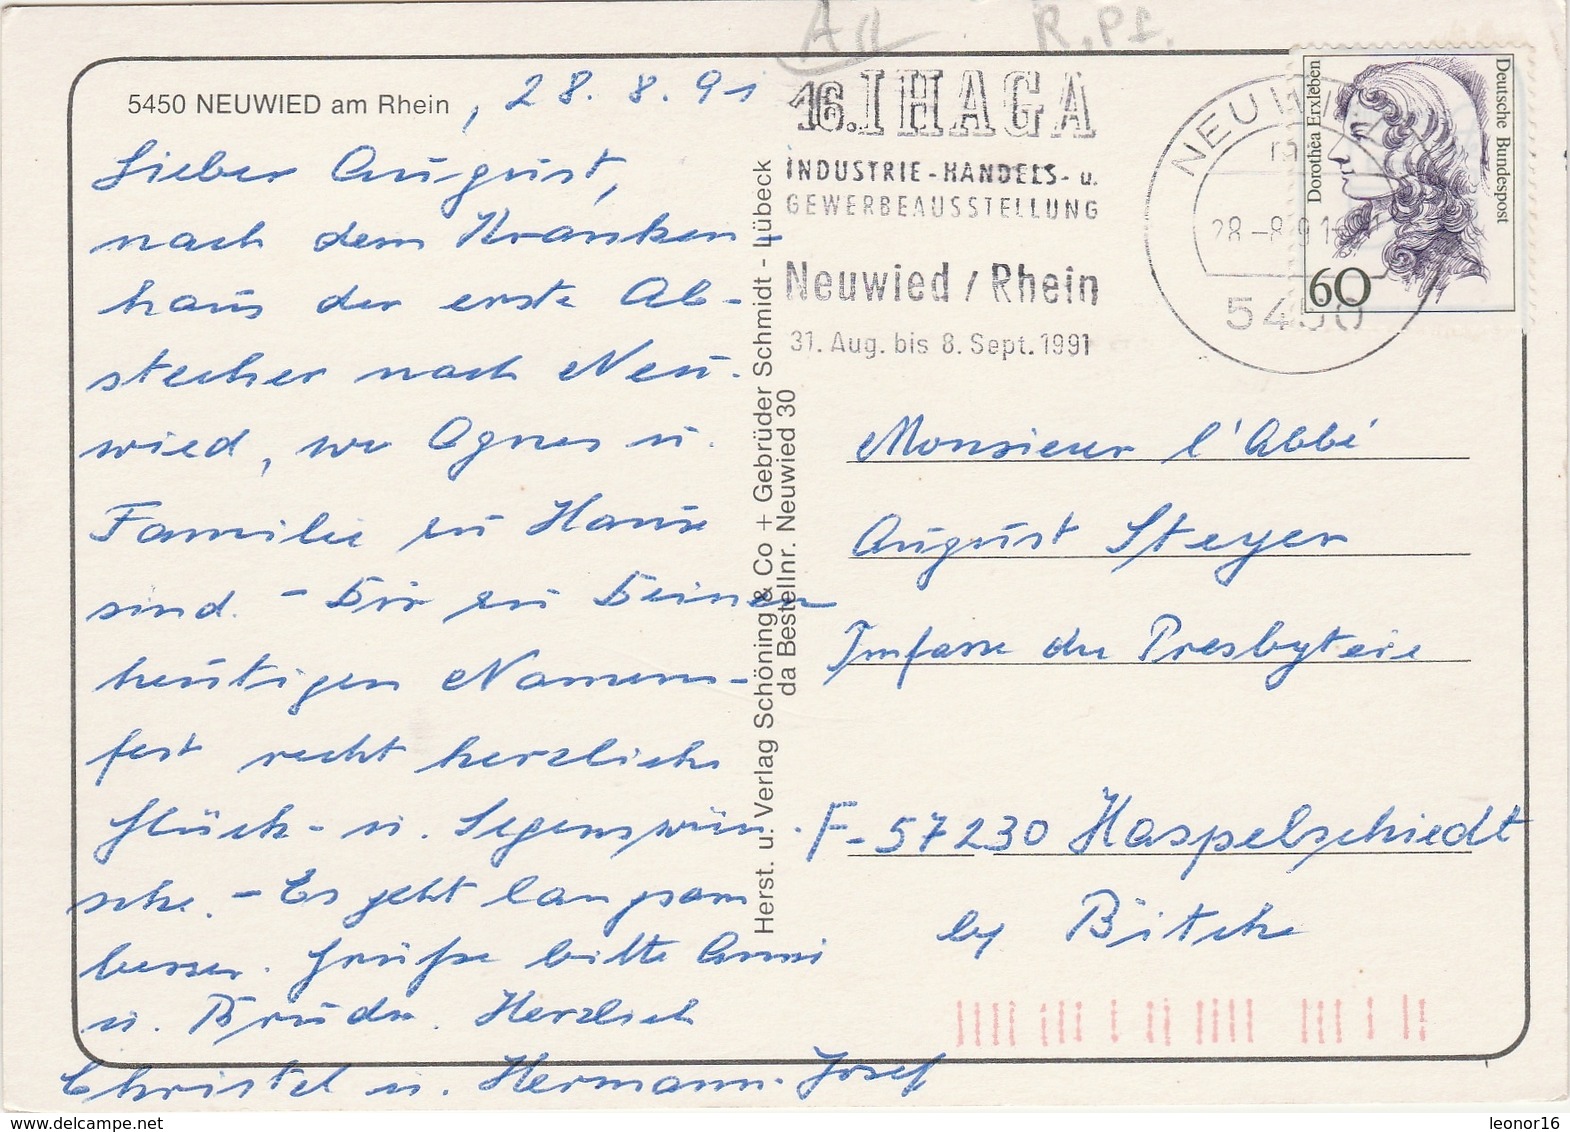 5450 NEUWIED am Rhein, 28. 8. 91
Lieber August,
nach dem Kranken-
haus der erste Ab-
stecher nach Neu-
wied, wo Agnes u.
Familie zu Hause
sind. – Dir zu Deinem
heutigen Namens-
fest recht herzliche
Glück- u. Segenswün-
sche. – Es geht langsam
besser. Grüße bitte Anni
u. Bruder. Herzlich
Christel u. Hermann-Josef
Herst. u. Verlag Schöning & Co + Gebrüder Schmidt - Lübeck
da Bestellnr. Neuwied 30
R, Pf.
16. IHAGA
INDUSTRIE-HANDELS- u.
GEWERBEAUSSTELLUNG
Neuwied / Rhein
31. Aug. bis 8. Sept. 1991
NEUWIED
28.-8.91
5450
Dorothea Erxleben
Deutsche Bundespost
60
Monsieur l'Abbé
August Steyer
Impasse du Presbytère
F-57230 Haspelschiedt
by Bitche
leonor16